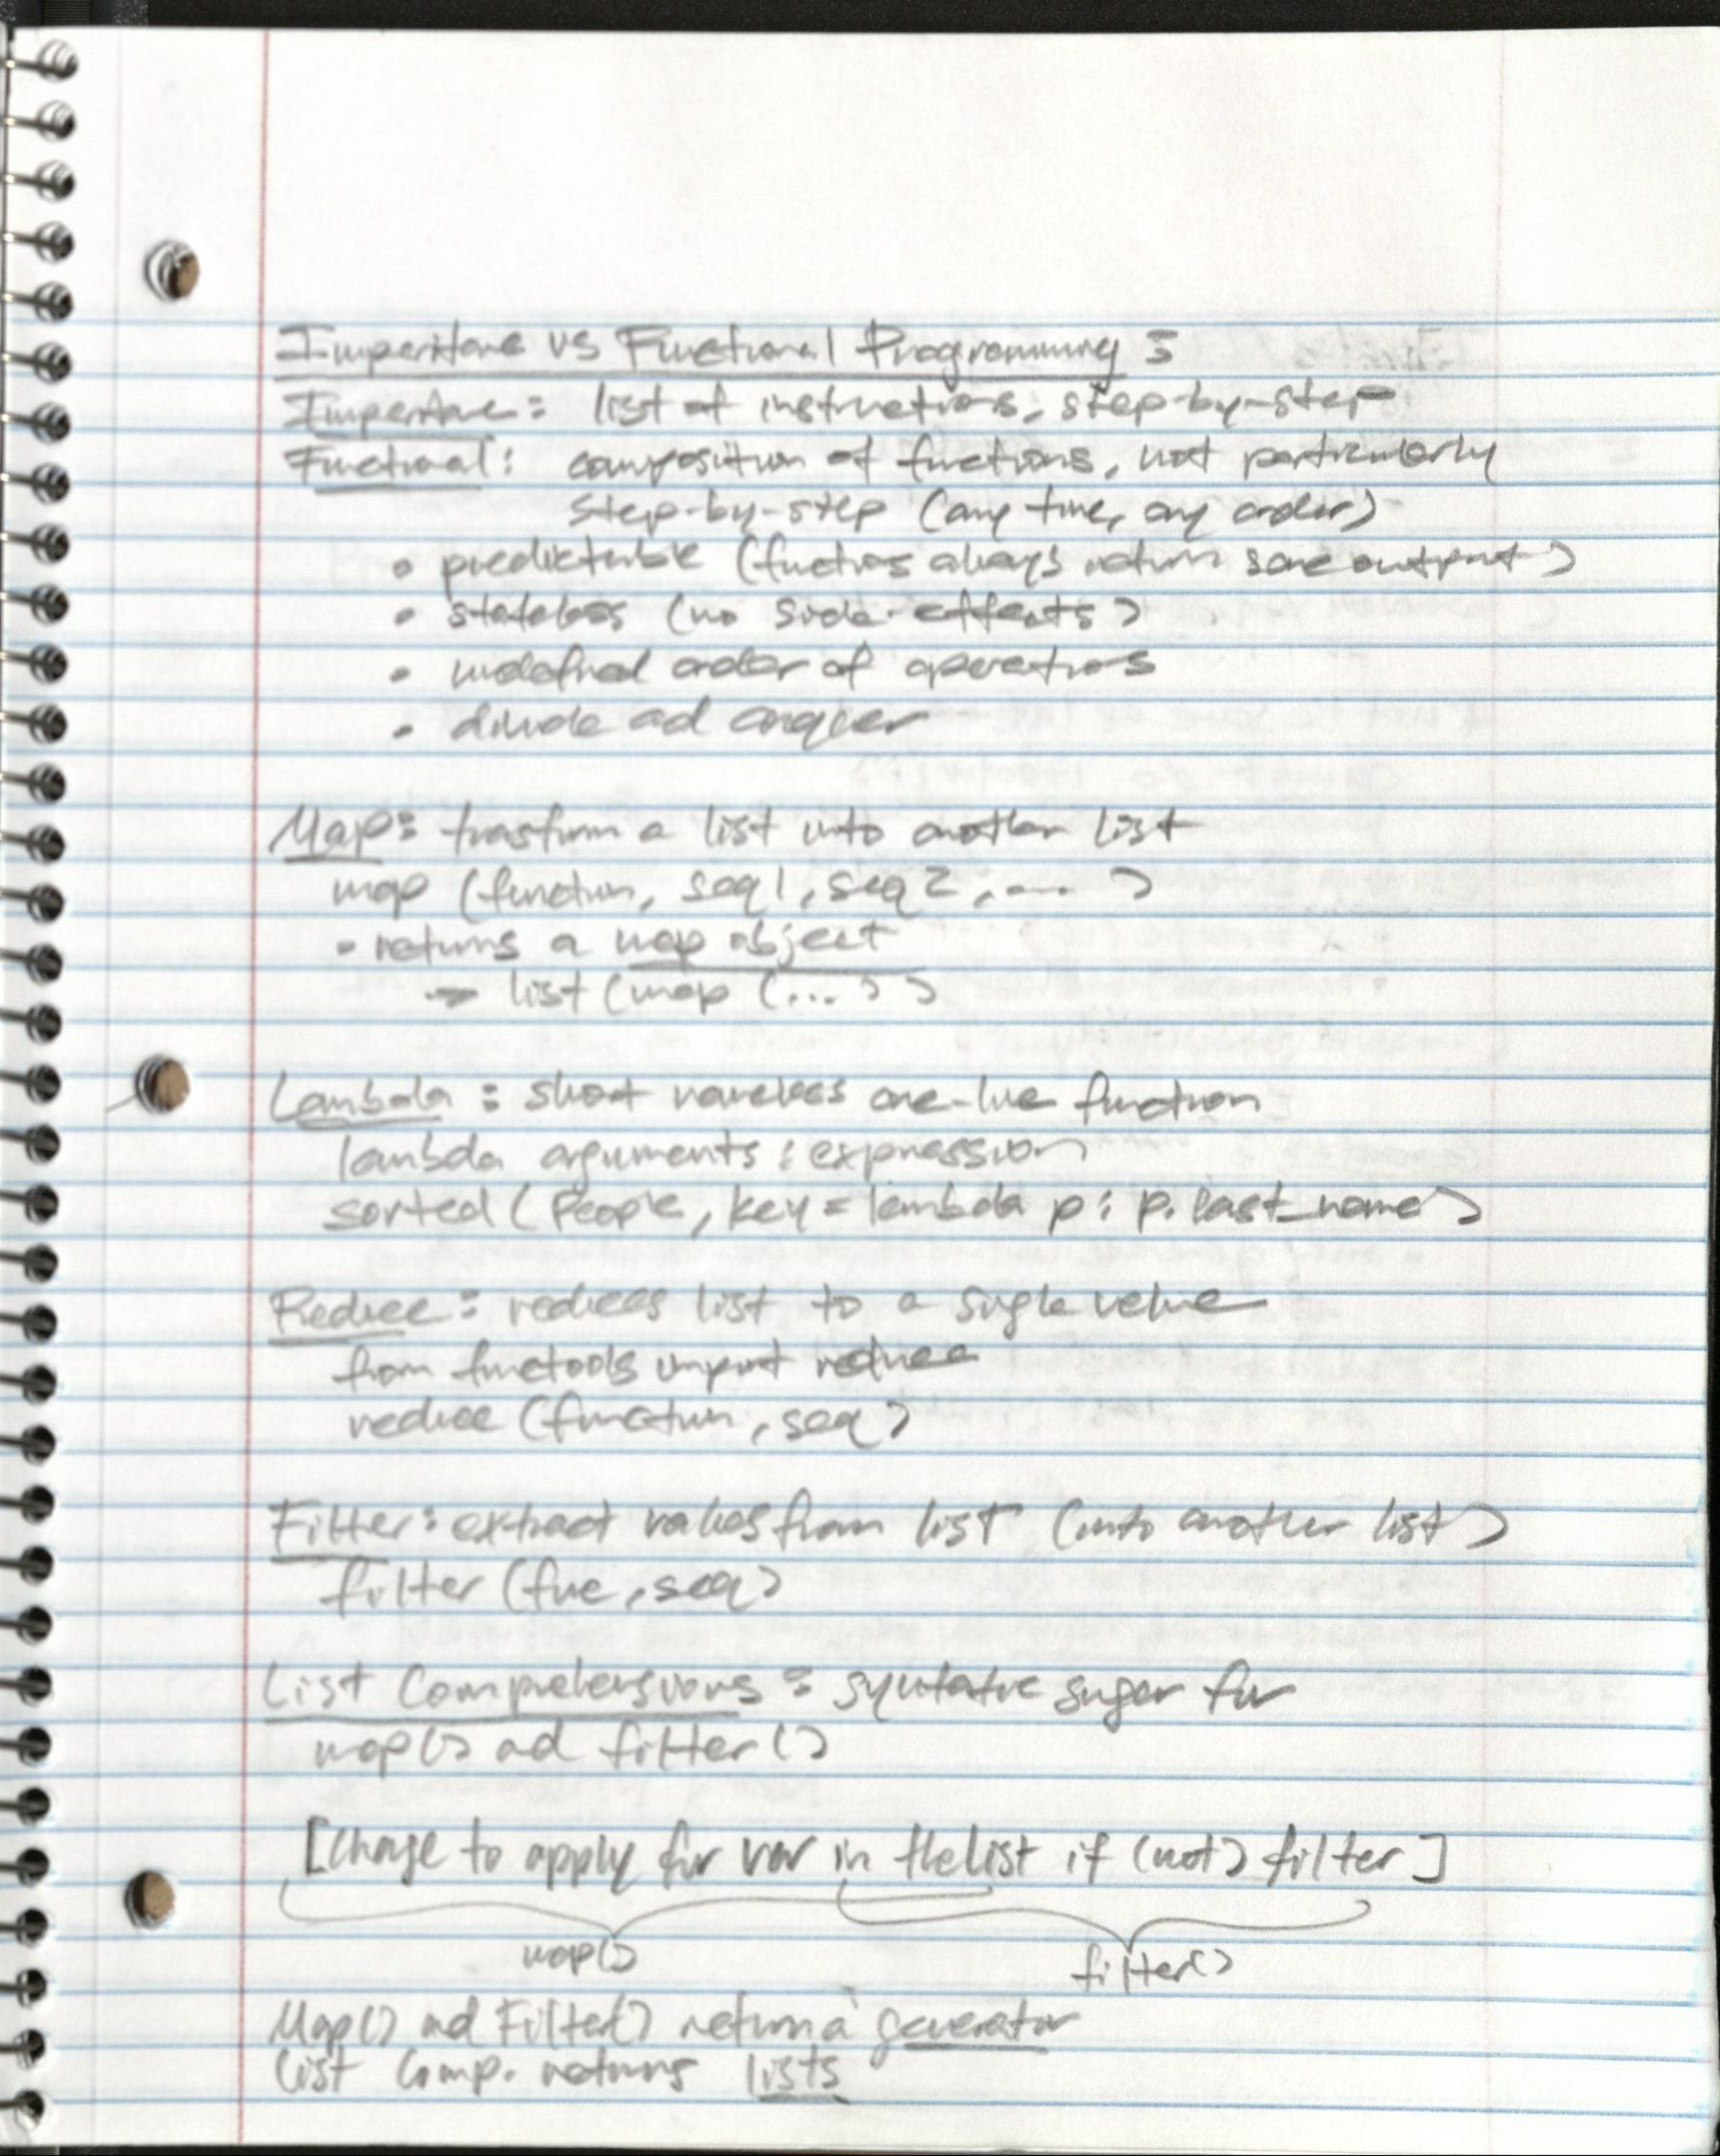 Imperative vs Functional Programming:
Imperative: list of instructions, step-by-step
Functional: composition of functions, not particularly
step-by-step (any time, any order)
• predictable (functions always return same output)
• stateless (no side-effects)
• undefined order of operations
• divide and conquer
Map: transform a list into another list
map (function, seq1, seq2, .... )
• returns a map object
→ list (map (...))
Lambda: short nameless one-line function
lambda arguments : expression
sorted (people, key = lambda p: p.last_name)
Reduce: reduces list to a single value
from functools import reduce
reduce (function, seq)
Filter: extract values from list (into another list)
filter (func, seq)
List Comprehensions: syntative sugar for
map() and filter()
[Change to apply for var in the list if (not) filter]
map()
filter()
Map() and Filter() return a generator
List Comp. returns lists